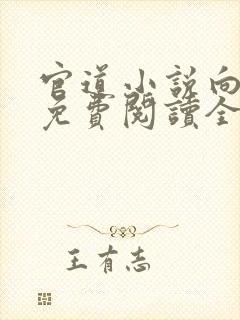 官道小説向
免費閱讀全
王有志